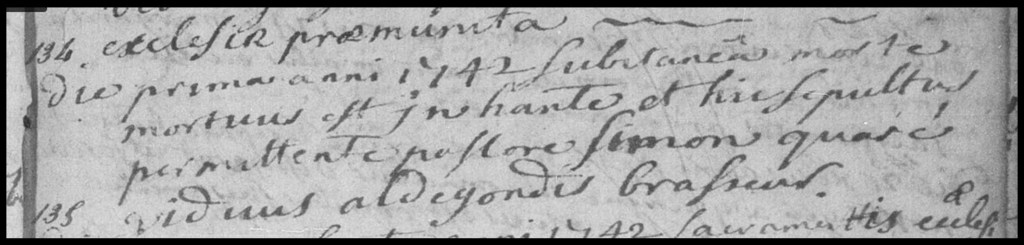 134 ecclesiæ præmunita
die prima anni 1742 subitaneâ morte
mortuus est jn hante et hic sepultus
permittente pastore simon quaré
viduus aldegondis brasseur.
135 1742 sacramentis ecclesiæ